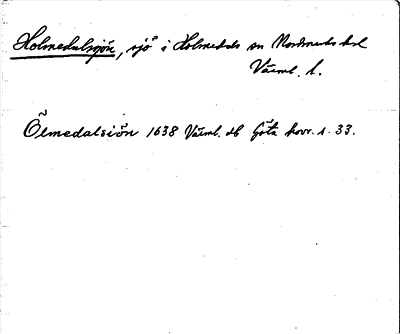 Holmedalsjön, sjö i Holmedals sn Nordmarks hd
Värml. l.
Ölmedalsiön 1638 Värml. db Göta hovr. s. 33.